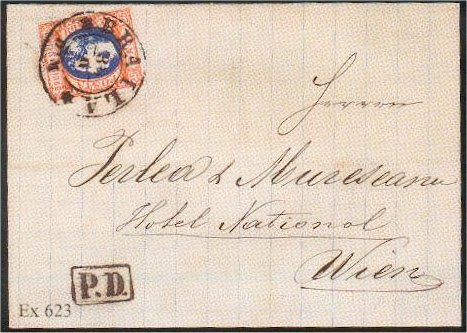 BRAILA
Herren
Perlea & Mureseanu
Hotel National
Wien
P.D.
Ex 623